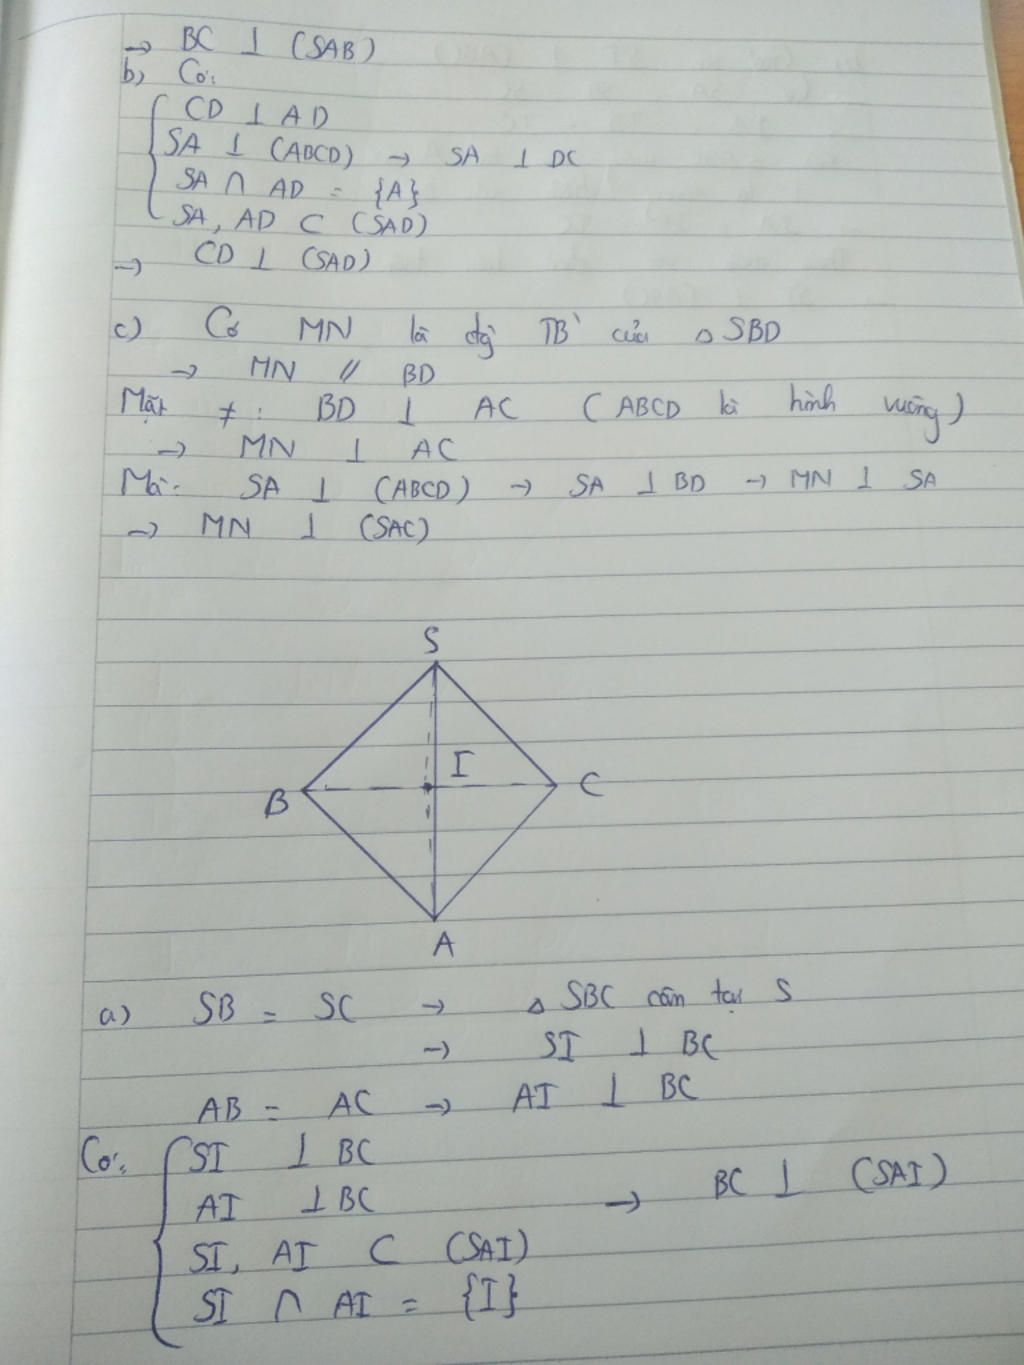 → BC ⊥ (SAB)
b) Có:
CD ⊥ AD
SA ⊥ (ABCD) → SA ⊥ DC
SA ∩ AD = {A}
SA, AD ⊂ (SAD)
→ CD ⊥ (SAD)
c) Có MN là đg` TB` của △ SBD
→ MN // BD
Mặt ≠: BD ⊥ AC (ABCD là hình vuông)
→ MN ⊥ AC
Mà: SA ⊥ (ABCD) → SA ⊥ BD → MN ⊥ SA
→ MN ⊥ (SAC)
S
I
B
C
A
a) SB = SC → △ SBC cân tại S
→ SI ⊥ BC
AB = AC → AI ⊥ BC
Có: SI ⊥ BC
AI ⊥ BC → BC ⊥ (SAI)
SI, AI ⊂ (SAI)
SI ∩ AI = {I}